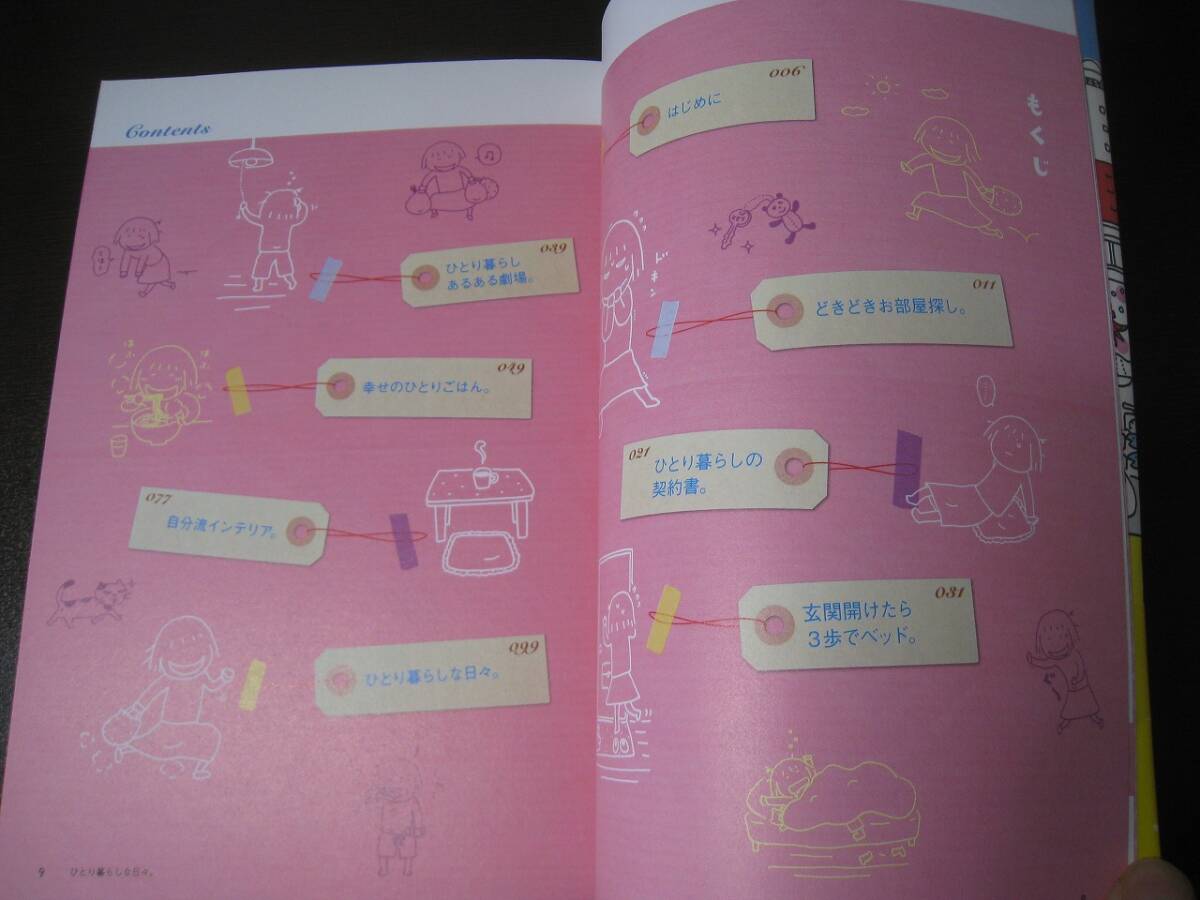 もくじ
006
はじめに
011
どきどきお部屋探し。
021
ひとり暮らしの
契約書。
031
玄関開けたら
3歩でベッド。
ドキン
Contents
039
ひとり暮らし
あるある劇場。
049
幸せのひとりごはん。
077
自分流インテリア。
099
ひとり暮らしな日々。
9 ひとり暮らしな日々。